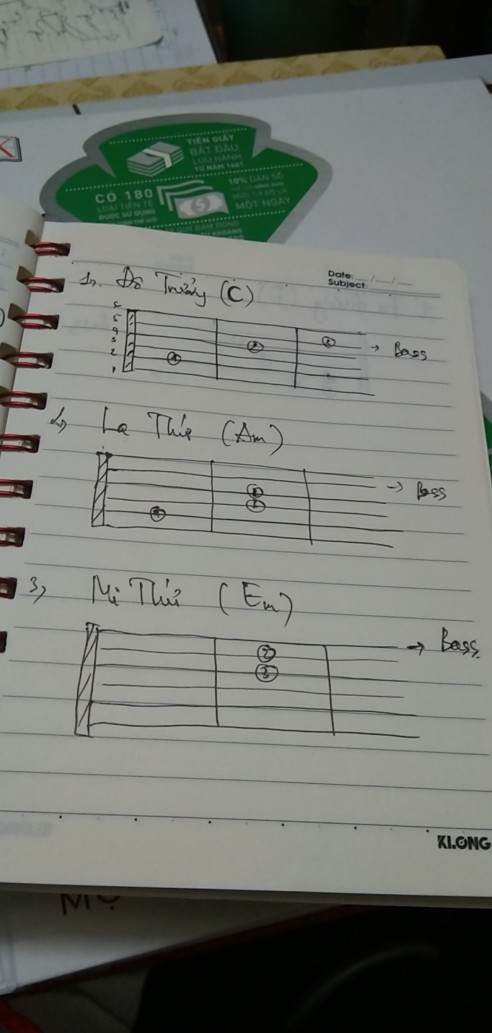 TIỀN GIẤY
BẮT ĐẦU
LƯU HÀNH
TỪ NĂM 1661
CÓ 180
LOẠI TIỀN TỆ
ĐƯỢC SỬ DỤNG
10% DÂN SỐ
MỘT NGÀY
Date:
Subject
1, Đô Trưởng (C)
6
5
4
3
2
1
→ Bass
2, La Thứ (Am)
→ Bass
3, Mi Thứ (Em)
→ Bass.
2
3
KLONG